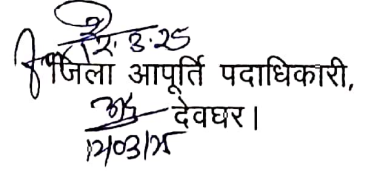 12.3.25
जिला आपूर्ति पदाधिकारी,
देवघर।
12/03/25